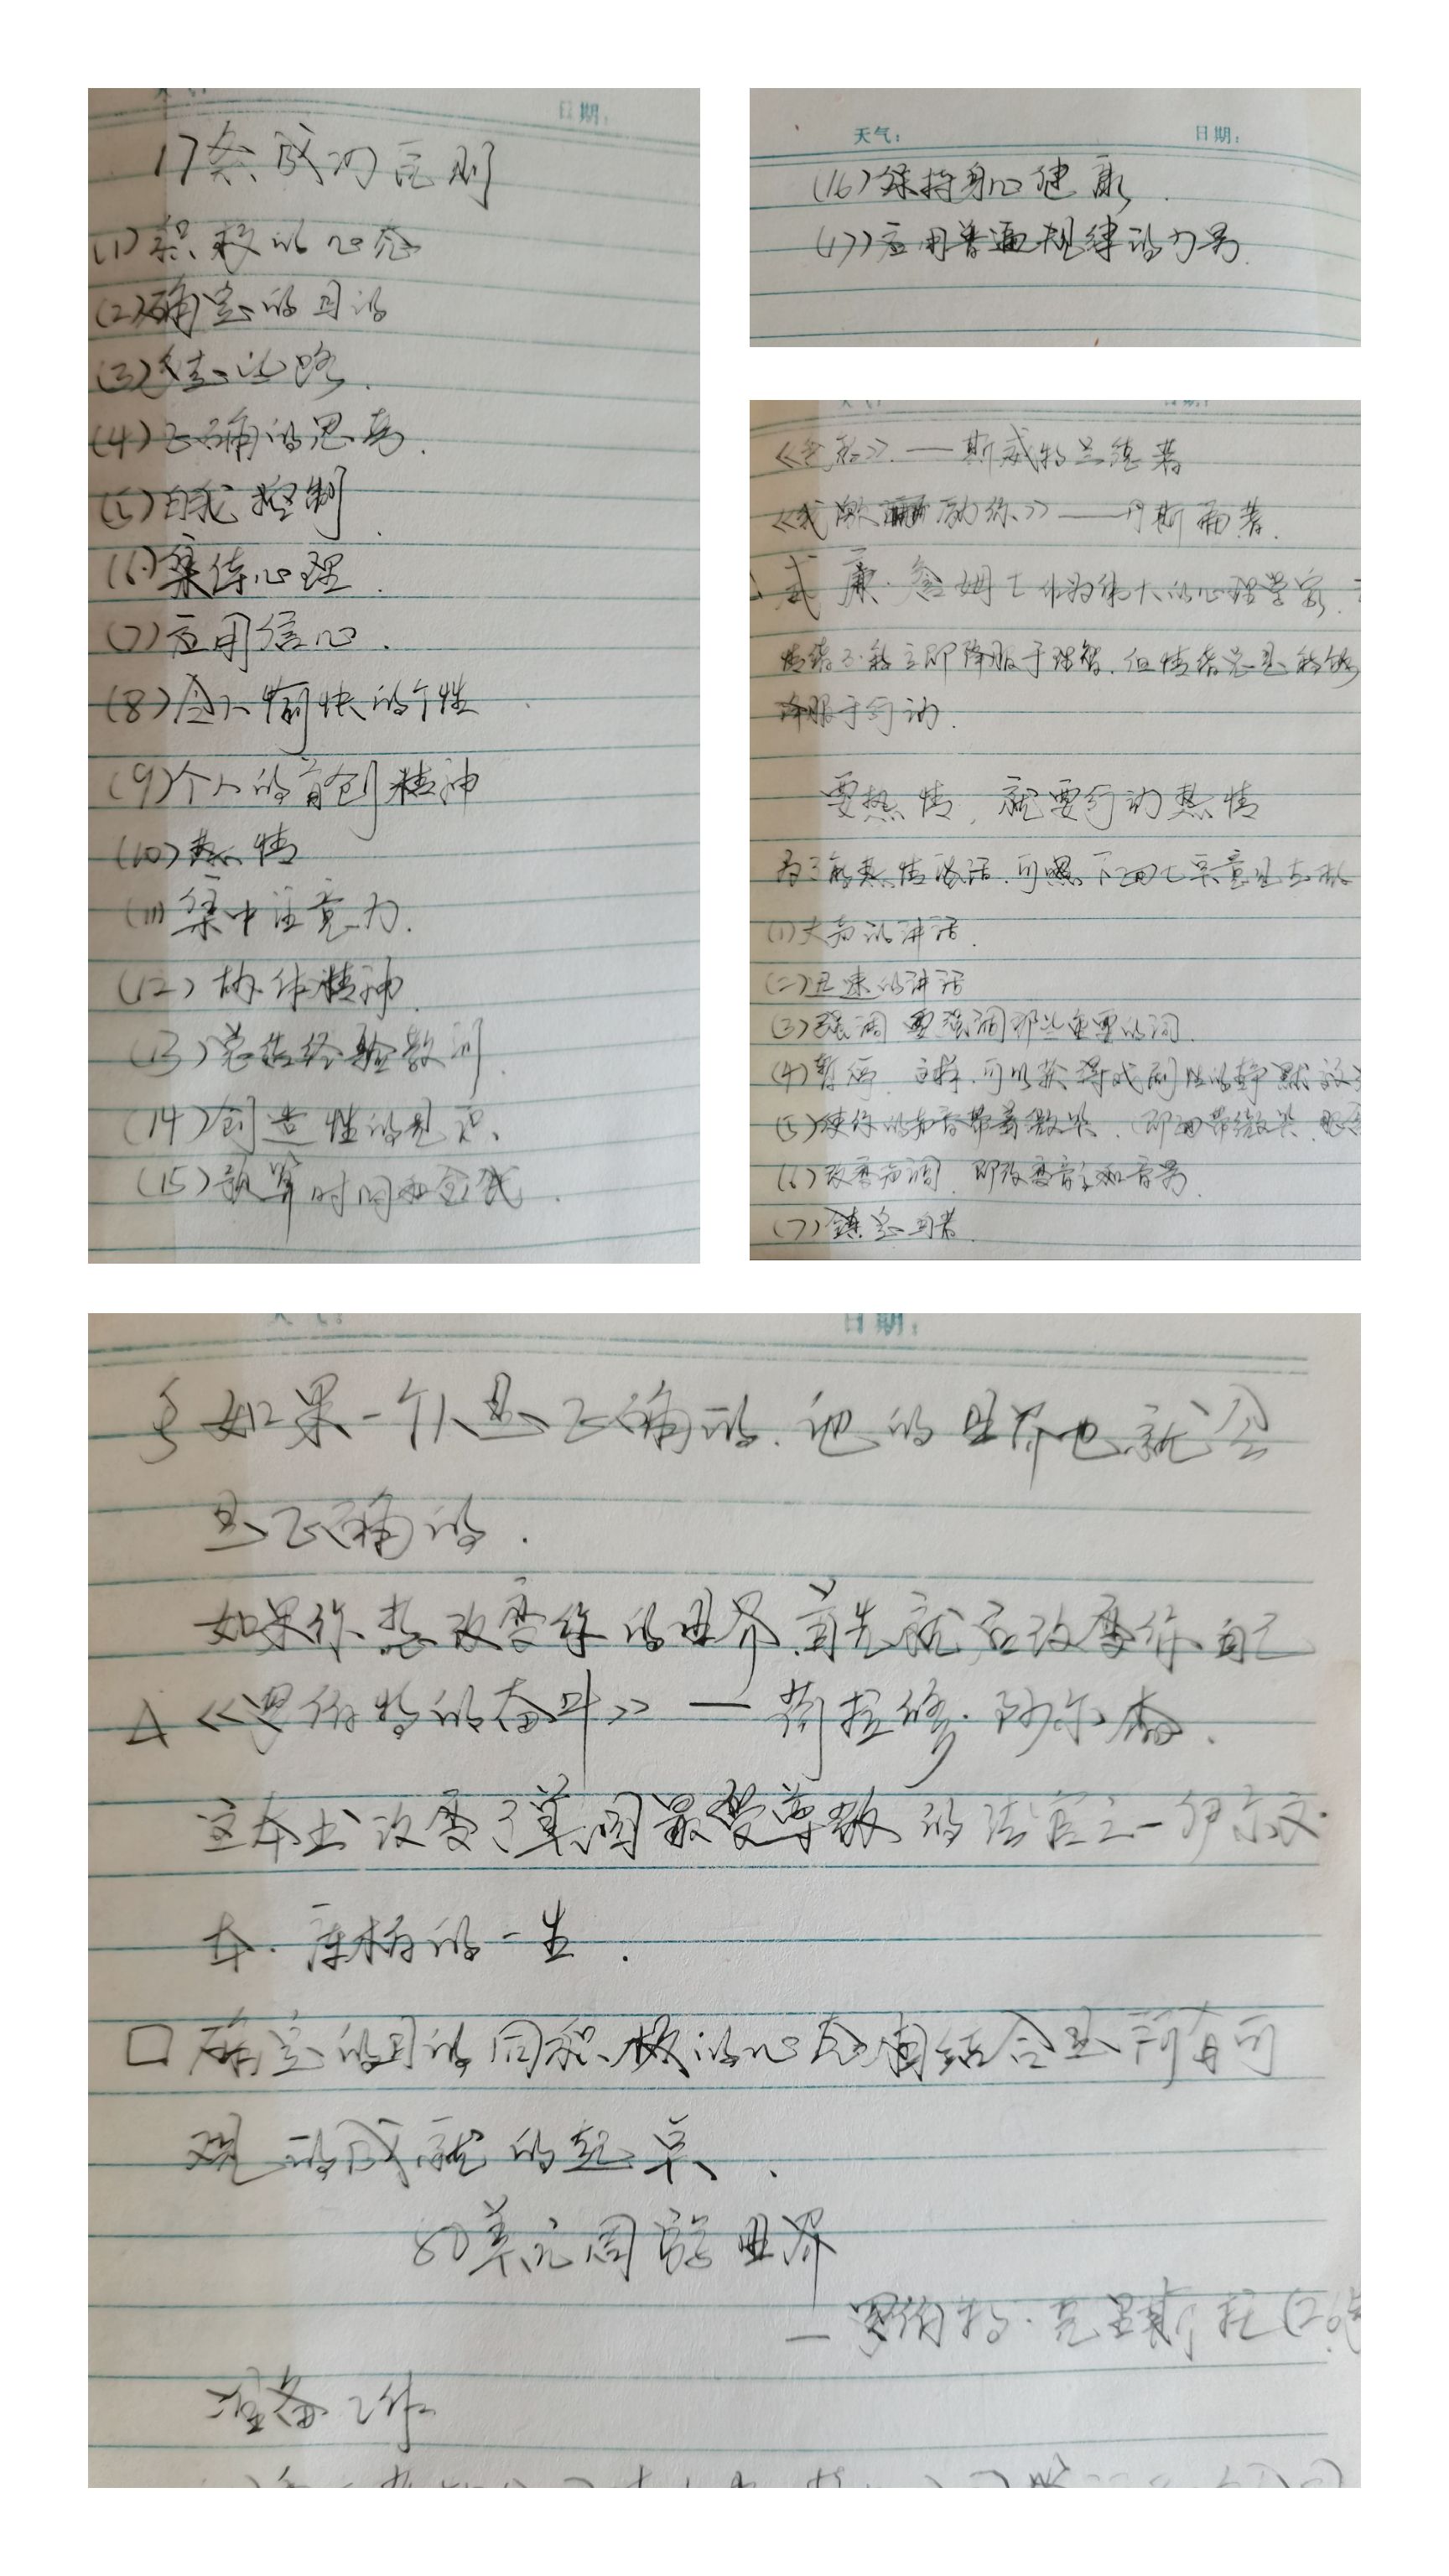 日期:
17条成功原则
(1)积极的心态
(2)确定的目的
(3)多走些路.
(4)正确的思考.
(5)自我控制.
(6)集体心理.
(7)应用信心.
(8)令人愉快的个性
(9)个人的首创精神
(10)热情
(11)集中注意力.
(12)协作精神.
(13)总结经验教训.
(14)创造性的见识.
(15)预算时间和金钱.
天气: 日期:
(16)保持身心健康.
(17)应用普遍规律的力量.
——斯威特兰德著
《我激励你》——丹斯著.
威廉·詹姆士作为伟大的心理学家.
情绪不能立即降服于理智.但情绪总是能够
降服于行动.
要热情,就要行动热情
为了能热情谈话.可照下面七点意见去做
(1)大声的讲话.
(2)迅速的讲话
(3)强调 要强调那些重要的词.
(4)暂停. 这样.可以获得戏剧性的静默效
(5)使你的声音带着微笑.(即面带微笑.眼
(6)改变声调. 即改变音和音量.
(7)
日期:
如果一个人是正确的.他的世界也就会
是正确的.
如果你想改变你的世界.首先就应改变你自己
△《罗伯特的奋斗》—荷拉修·阿尔杰.
这本书改变了美国最受尊敬的法官之一伊尔文·
本·库柏的一生.
□确定的目的同积极的心态相结合是所有可
观的成就的起点.
80美元周游世界
—罗伯特·克里斯托(26岁
准备工作